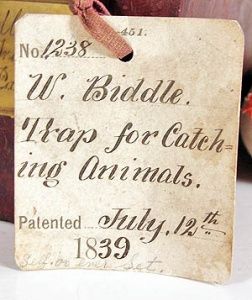 -451.
No. 1238
W. Biddle.
Trap for Catch=
ing Animals.
Patented July, 12th
1839